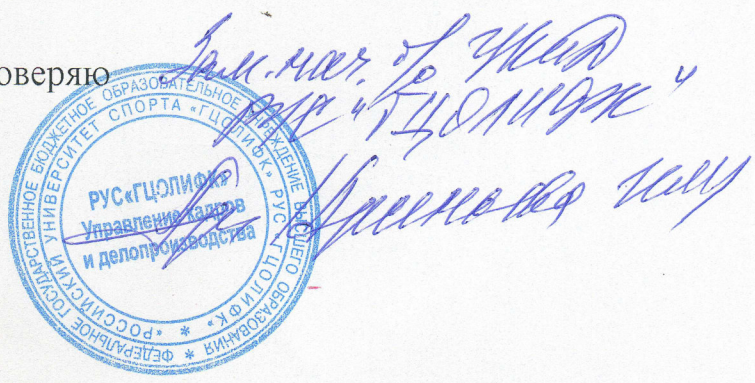 оверяю
Зам. нач.
РУС "ГЦОЛИФК"
ФЕДЕРАЛЬНОЕ ГОСУДАРСТВЕННОЕ БЮДЖЕТНОЕ ОБРАЗОВАТЕЛЬНОЕ УЧРЕЖДЕНИЕ ВЫСШЕГО ОБРАЗОВАНИЯ *
«РОССИЙСКИЙ УНИВЕРСИТЕТ СПОРТА «ГЦОЛИФК» РУС «ГЦОЛИФК» *
РУС«ГЦОЛИФК»
Управление кадров
и делопроизводства